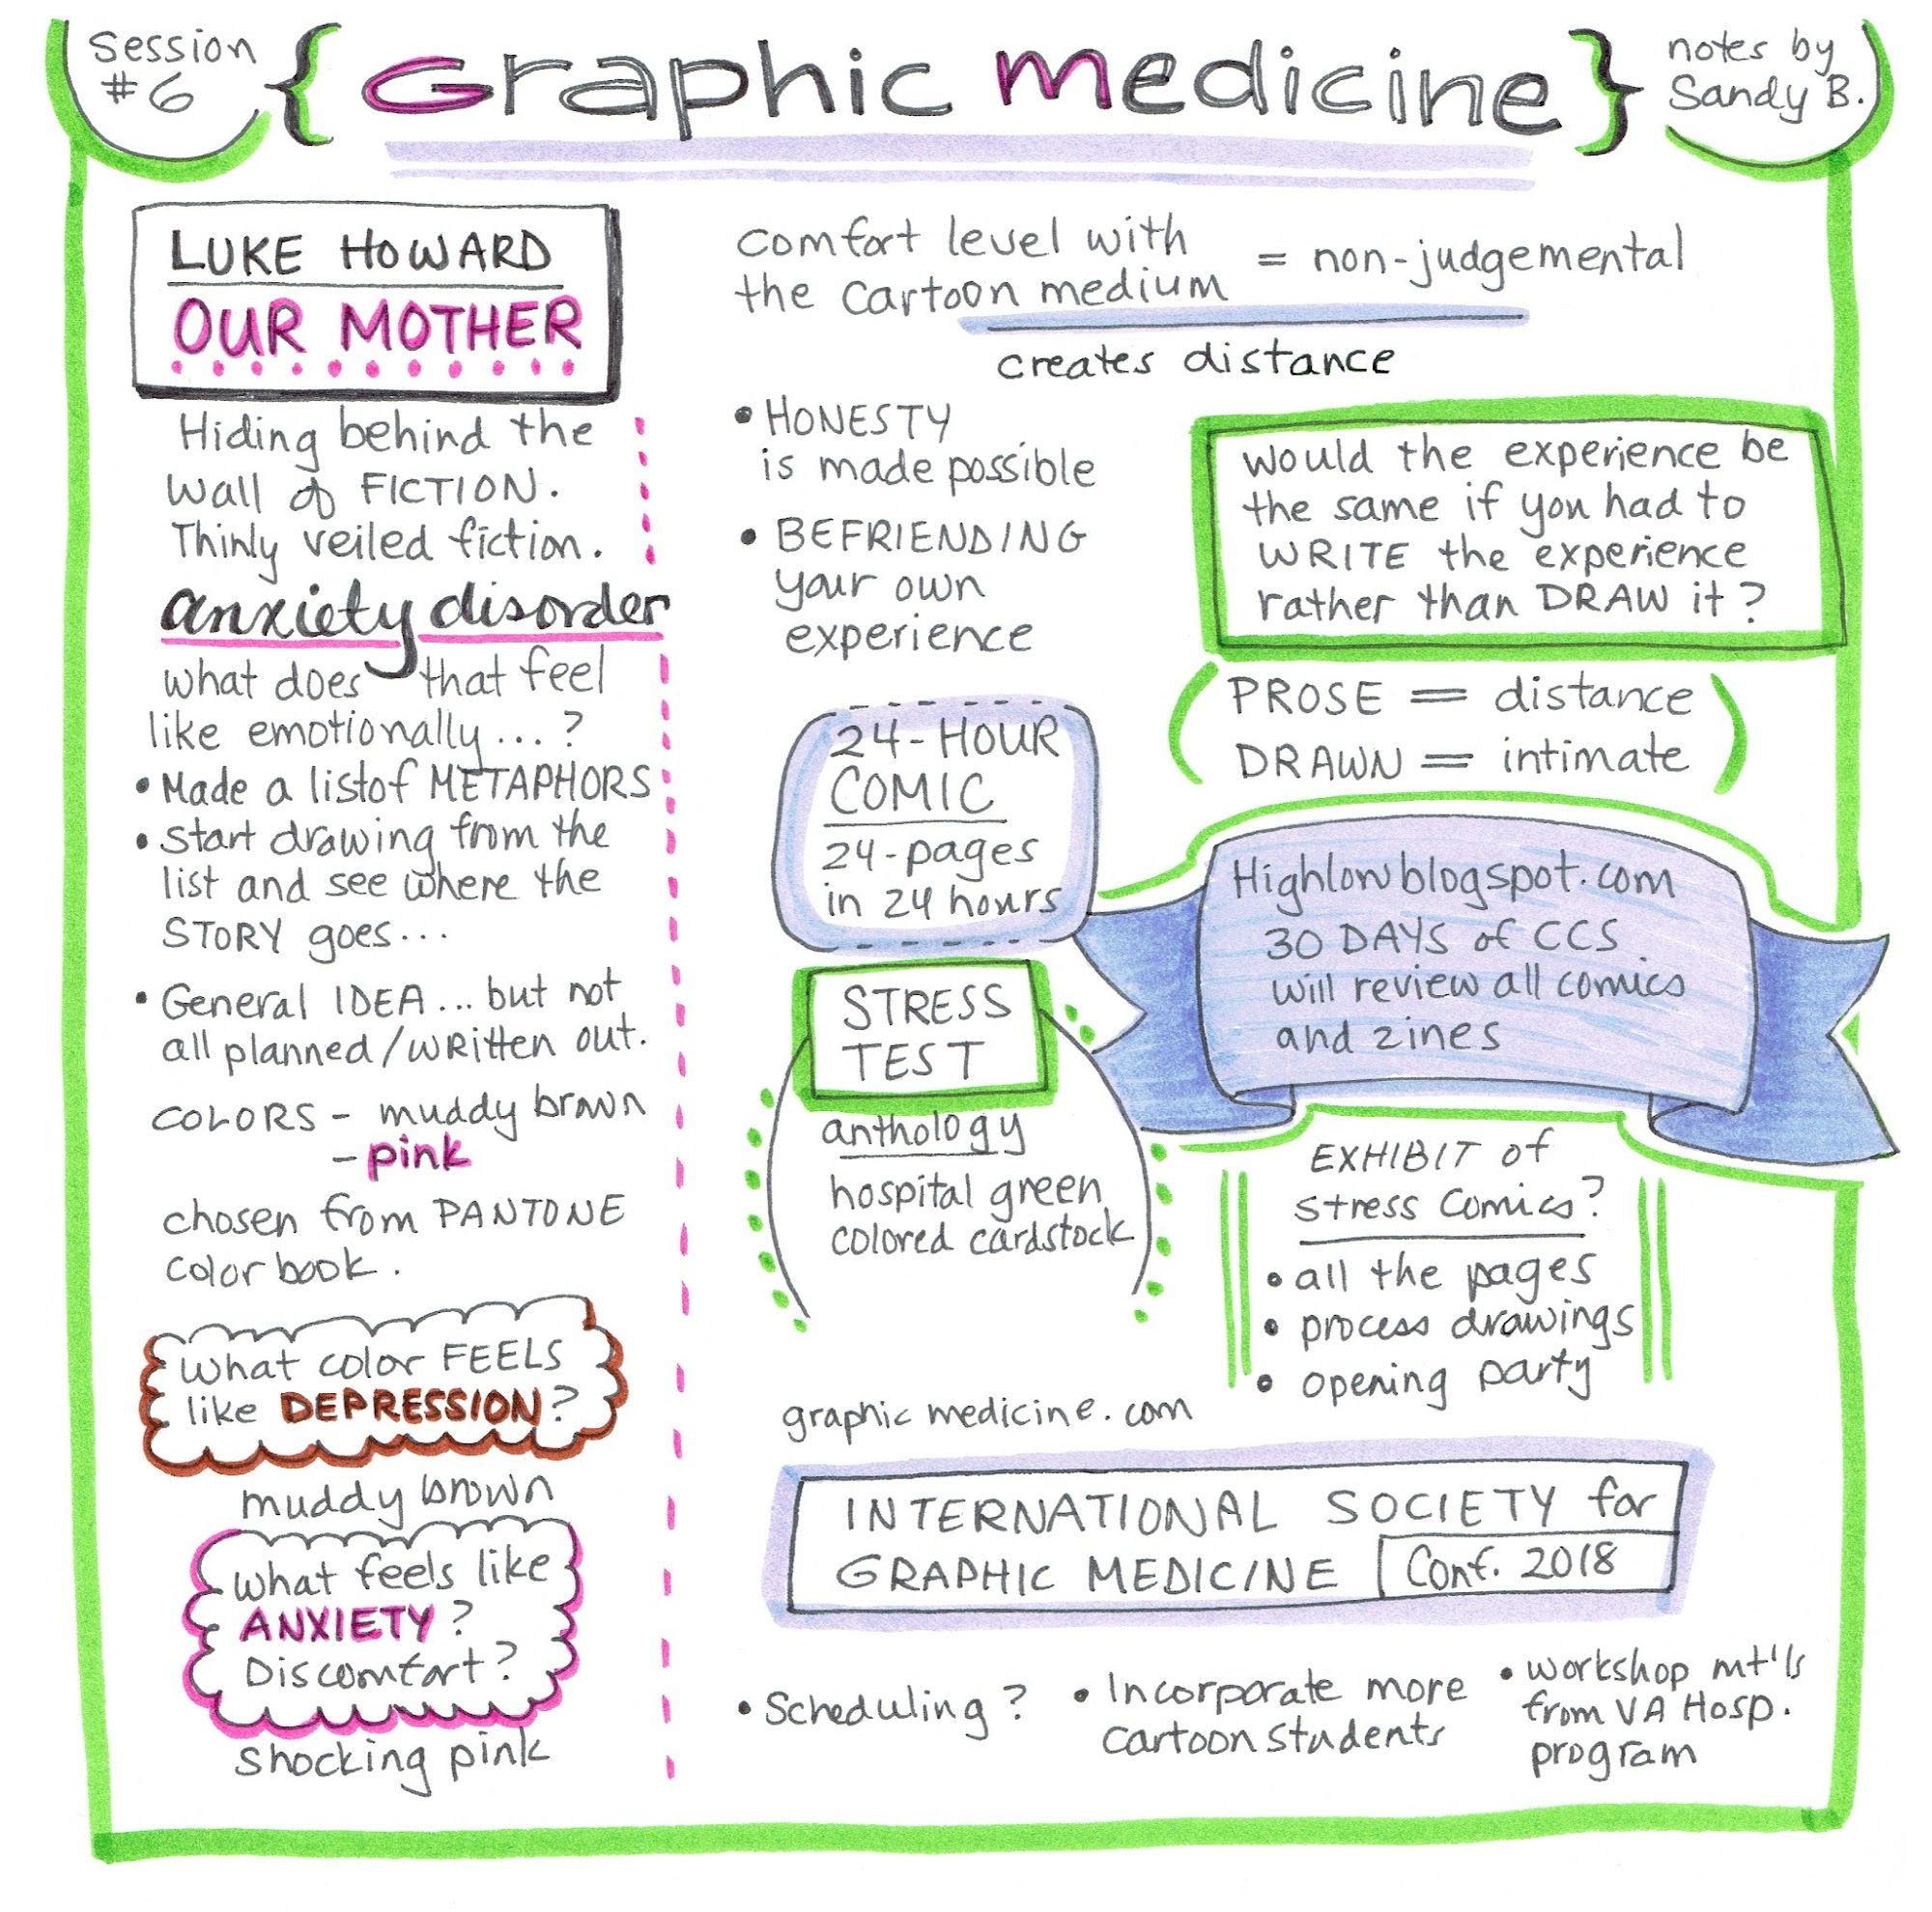 Session
#6
{ Graphic medicine }
notes by
Sandy B.
LUKE HOWARD
OUR MOTHER
Hiding behind the
wall of FICTION.
Thinly veiled fiction.
anxiety disorder
what does that feel
like emotionally...?
• Made a list of METAPHORS
• Start drawing from the
list and see where the
STORY goes...
• General IDEA... but not
all planned/written out.
COLORS - muddy brown
- pink
chosen from PANTONE
color book.
What color FEELS
like DEPRESSION?
muddy brown
What feels like
ANXIETY?
Discomfort?
Shocking pink
comfort level with
the cartoon medium
= non-judgemental
creates distance
• HONESTY
is made possible
• BEFRIENDING
your own
experience
Would the experience be
the same if you had to
WRITE the experience
rather than DRAW it?
(PROSE = distance
DRAWN = intimate)
24-HOUR
COMIC
24-pages
in 24 hours
Highlowblogspot.com
30 DAYS of CCS
will review all comics
and zines
STRESS
TEST
anthology
hospital green
colored cardstock
EXHIBIT of
stress comics?
• all the pages
• process drawings
• opening party
graphic medicine.com
INTERNATIONAL SOCIETY for
GRAPHIC MEDICINE Conf. 2018
• Scheduling?
• Incorporate more
cartoon students
• workshop mt'ls
from VA Hosp.
program